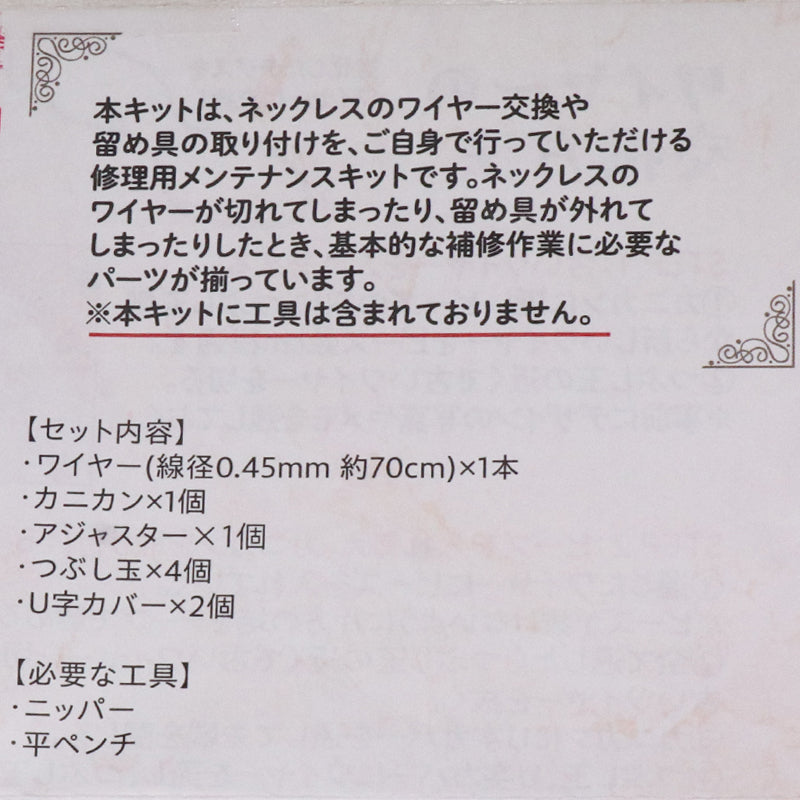 本キットは、ネックレスのワイヤー交換や
留め具の取り付けを、ご自身で行っていただける
修理用メンテナンスキットです。ネックレスの
ワイヤーが切れてしまったり、留め具が外れて
しまったりしたとき、基本的な補修作業に必要な
パーツが揃っています。
※本キットに工具は含まれておりません。
【セット内容】
・ワイヤー(線径0.45mm 約70cm)×1本
・カニカン×1個
・アジャスター×1個
・つぶし玉×4個
・U字カバー×2個
【必要な工具】
・ニッパー
・平ペンチ